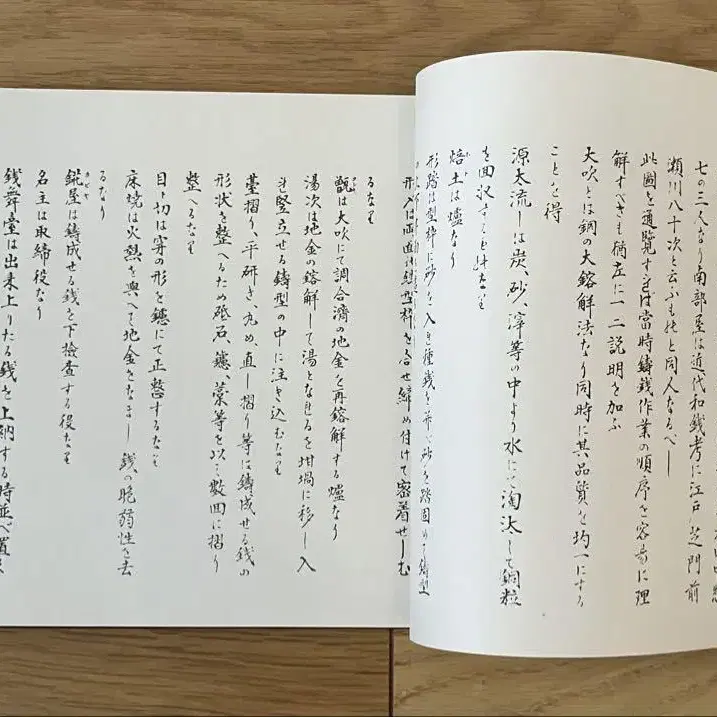 七の三人なり南部屋は近代和銭考に江戸芝門前
瀬川八十次と云ふものと同人なるべし
此圖を通覧すれば當時鋳銭作業の順序を容易に理
解すべきも猶左に一二説明を加ふ
大吹とは銅の大鎔解法なり同時に其品質を均一にする
ことを得
源太流しは炭、砂、滓等の中より水にて淘汰して銅粒
を回収することなり
焙土は爐なり
形踏は型枠に砂を入れ種銭を並べ砂を踏固めて鋳型
形入は両面の型枠を合せ締め付けて密着せしむ
るなり
甑は大吹にて調合濟の地金を再鎔解する爐なり
湯次は地金の鎔解して湯となれるを坩堝に移し入
れ竪立せる鋳型の中に注き込むなり
臺摺り、平研き、丸め、直し摺り等は鋳成せる銭の
形状を整へるため砥石、鑢、藁等を以て数回に摺り
整へるなり
目ト切は穿の形を鑢にて正整するなり
床焼は火熱を與へて地金をなまし銭の脆弱性を去
るなり
鋩屋は鋳成せる銭を下検査する役なり
名主は取締役なり
銭舞臺は出来上りたる銭を上納する時並べ置